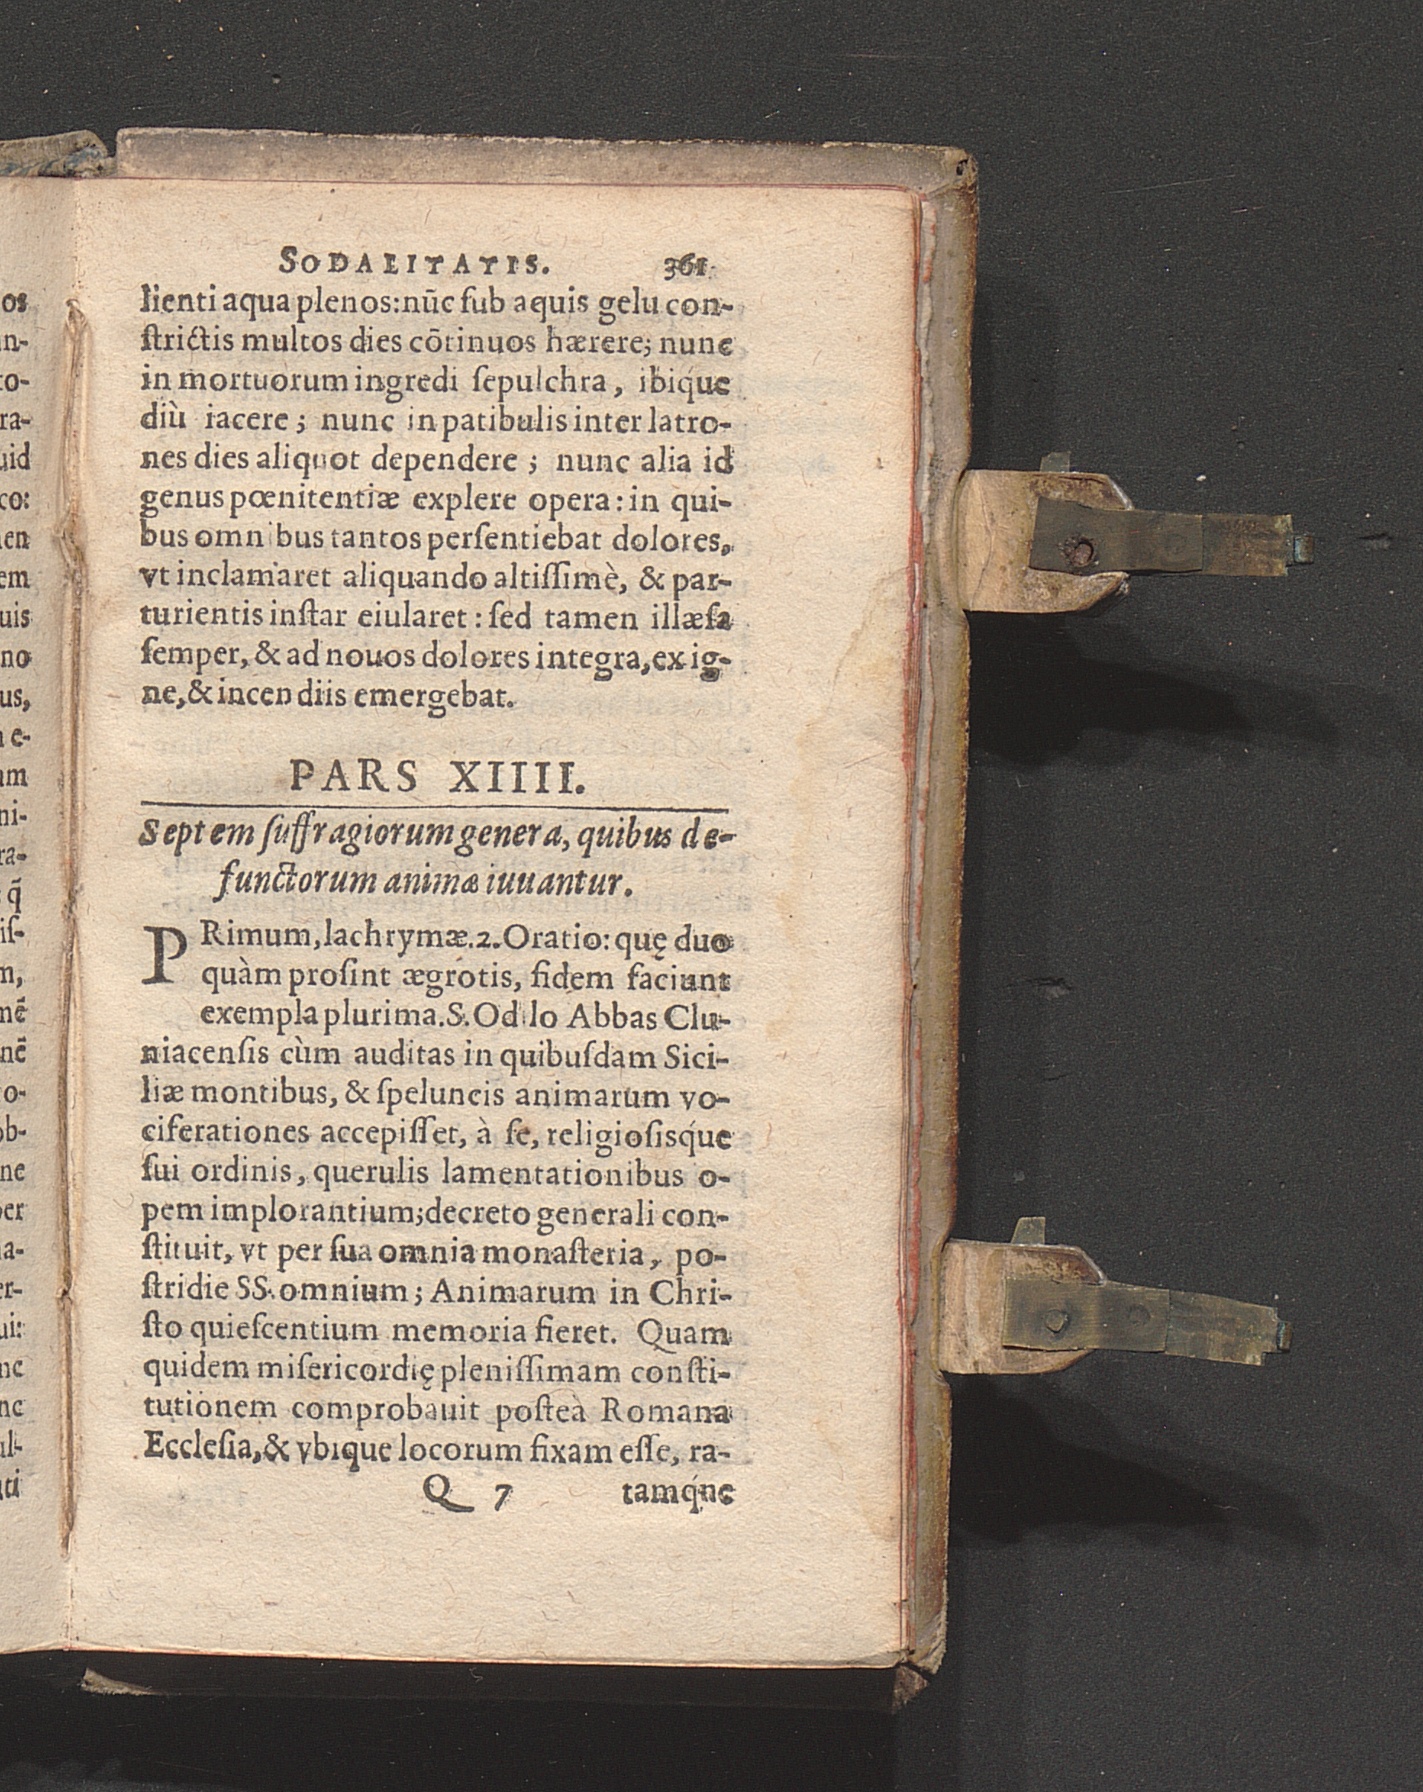 SODALITATIS. 361
lienti aqua plenos:nūc ſub aquis gelu con-
ſtrictis multos dies cōtinuos hærere; nunc
in mortuorum ingredi ſepulchra, ibiq́ue
diù iacere; nunc in patibulis inter latro-
nes dies aliquot dependere; nunc alia id
genus pœnitentiæ explere opera: in qui-
bus omnibus tantos perſentiebat dolores,
vt inclamaret aliquando altiſſimè, & par-
turientis inſtar eiularet: ſed tamen illæſa
ſemper, & ad nouos dolores integra, ex ig-
ne, & incendiis emergebat.
PARS XIIII.
Septem ſuffragiorum genera, quibus de-
functorum animæ iuuantur.
PRimum, lachrymæ. 2. Oratio: quę duo
quàm proſint ægrotis, fidem faciunt
exempla plurima. S. Odilo Abbas Clu-
niacenſis cùm auditas in quibuſdam Sici-
liæ montibus, & ſpeluncis animarum vo-
ciferationes accepiſſet, à ſe, religioſisq́ue
ſui ordinis, querulis lamentationibus o-
pem implorantium; decreto generali con-
ſtituit, vt per ſua omnia monaſteria, po-
ſtridie SS. omnium; Animarum in Chri-
ſto quieſcentium memoria fieret. Quam
quidem miſericordię pleniſſimam conſti-
tutionem comprobauit poſteà Romana
Eccleſia, & vbique locorum fixam eſſe, ra-
Q 7 tamq́ue
os
n-
to-
ra-
uid
co:
en
em
uis
no
us,
e-
um
ni-
ra-
q̃
iſ-
m,
mē
nē
o-
ob-
ne
per
a-
er-
ui:
nc
nc
ul-
ti